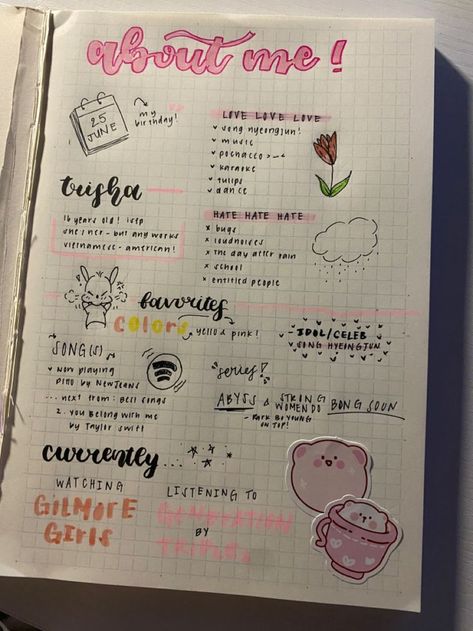 about me!
25
JUNE
my
birthday!
LOVE LOVE LOVE
song hyeongjun!
music
pochacco >-<
karaoke
tulips
dance
trisha
16 years old! isfp
she/her - but any works
vietnamese-american!
HATE HATE HATE
x bugs
x loudnoises
x the day after rain
x school
x entitled people
favorites
colors
yello & pink!
IDOL/CELEB
SONG HYEONGJUN
SONG(S)
now playing
DITTO by NewJeans
... next from: Best songs
2. You Belong With Me
by Taylor Swift
series!
ABYSS & STRONG WOMEN DO BONG SOUN
- PARK BO YOUNG
ON TOP!
currently...
WATCHING
GILMORE
GIRLS
LISTENING TO
GENERATION
BY
TRIPLES